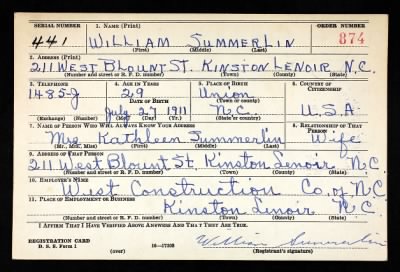 SERIAL NUMBER 1. NAME (Print) ORDER NUMBER
441 WILLIAM SUMMERLIN 874
(First) (Middle) (Last)
2. ADDRESS (Print)
211 WEST BLOUNT ST. KINSTON LENOIR N.C.
(Number and street or R. F. D. number) (Town) (County) (State)
3. TELEPHONE 4. AGE IN YEARS 5. PLACE OF BIRTH 6. COUNTRY OF CITIZENSHIP
1485-J 29 Union
DATE OF BIRTH (Town or county)
July 27 1911 N.C. U.S.A.
(Exchange) (Number) (Mo.) (Day) (Yr.) (State or country)
7. NAME OF PERSON WHO WILL ALWAYS KNOW YOUR ADDRESS 8. RELATIONSHIP OF THAT PERSON
Mrs Kathleen Summerlin Wife
(Mr., Mrs., Miss) (First) (Middle) (Last)
9. ADDRESS OF THAT PERSON
211 West Blount St. Kinston Lenoir N.C.
(Number and street or R. F. D. number) (Town) (County) (State)
10. EMPLOYER'S NAME
West Construction Co. of N.C.
11. PLACE OF EMPLOYMENT OR BUSINESS
Kinston Lenoir N.C.
(Number and street or R. F. D. number) (Town) (County) (State)
I AFFIRM THAT I HAVE VERIFIED ABOVE ANSWERS AND THAT THEY ARE TRUE.
REGISTRATION CARD
D. S. S. Form 1 (over) 16—17105 William Summerlin
(Registrant's signature)